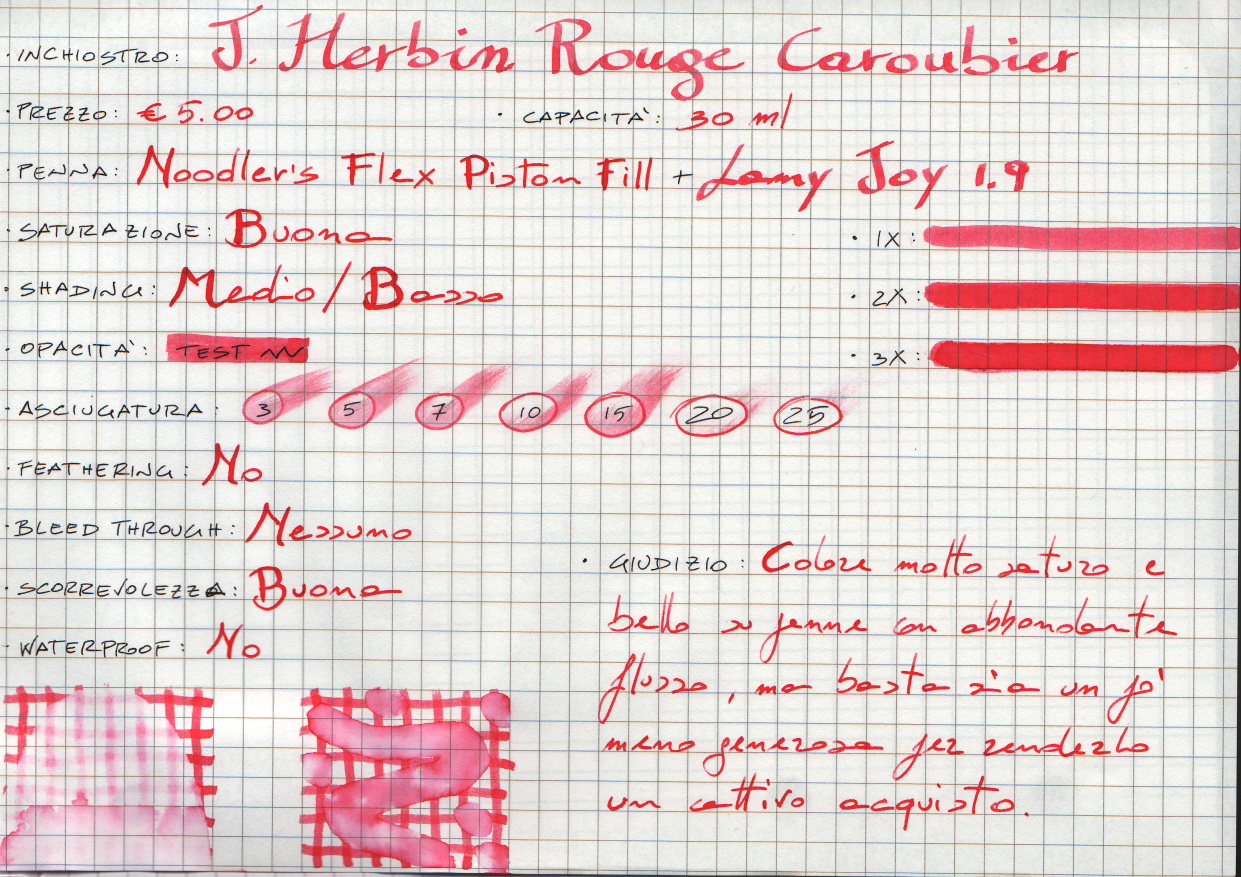 · INCHIOSTRO: J. Herbin Rouge Caroubier
· PREZZO: € 5.00 · CAPACITÀ: 30 ml
· PENNA: Noodler's Flex Piston Fill + Lamy Joy 1.9
· SATURAZIONE: Buona
· 1X:
· SHADING: Medio/Basso
· 2X:
· OPACITÀ: TEST
· 3X:
· ASCIUGATURA: 3 5 7 10 15 20 25
· FEATHERING: No
· BLEED THROUGH: Nessuno
· SCORREVOLEZZA: Buona
· WATERPROOF: No
· GIUDIZIO: Colore molto saturo e
bello su penne con abbondante
flusso, ma basta sia un pò
meno generosa per renderlo
un cattivo acquisto.